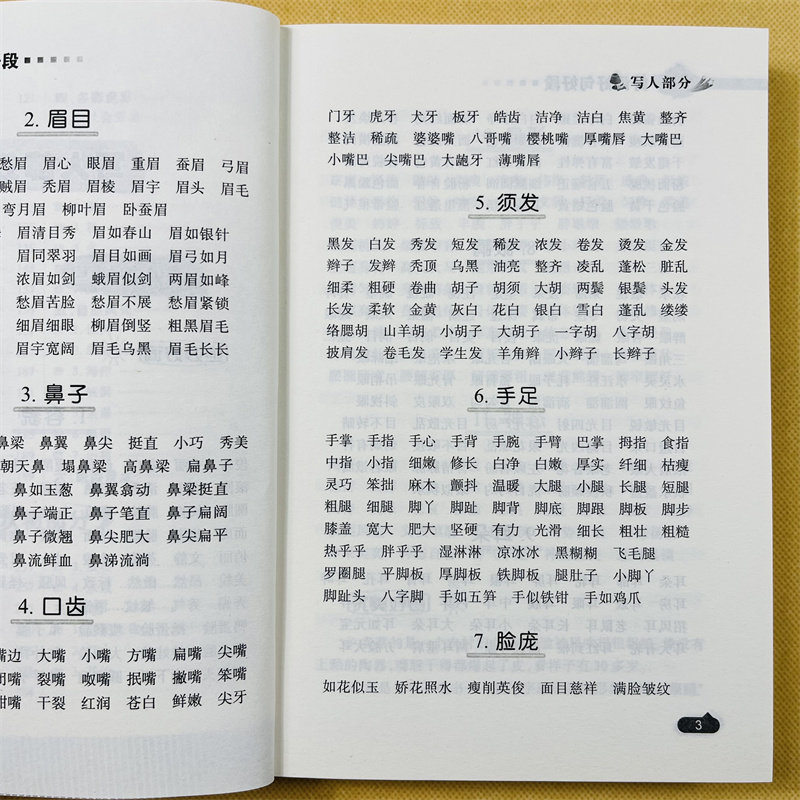 段
2. 眉目
愁眉 眉心 眼眉 重眉 蚕眉 弓眉
贼眉 秃眉 眉棱 眉宇 眉头 眉毛
弯月眉 柳叶眉 卧蚕眉
眉清目秀 眉如春山 眉如银针
眉同翠羽 眉目如画 眉弓如月
浓眉如剑 蛾眉似剑 两眉如峰
愁眉苦脸 愁眉不展 愁眉紧锁
细眉细眼 柳眉倒竖 粗黑眉毛
眉宇宽阔 眉毛乌黑 眉毛长长
3. 鼻子
鼻梁 鼻翼 鼻尖 挺直 小巧 秀美
朝天鼻 塌鼻梁 高鼻梁 扁鼻子
鼻如玉葱 鼻翼翕动 鼻梁挺直
鼻子端正 鼻子笔直 鼻子扁阔
鼻子微翘 鼻尖肥大 鼻尖扁平
鼻流鲜血 鼻涕流淌
4. 口齿
嘴边 大嘴 小嘴 方嘴 扁嘴 尖嘴
裂嘴 呶嘴 抿嘴 撇嘴 笨嘴
干裂 红润 苍白 鲜嫩 尖牙
写人部分
门牙 虎牙 犬牙 板牙 皓齿 洁净 洁白 焦黄 整齐
整洁 稀疏 婆婆嘴 八哥嘴 樱桃嘴 厚嘴唇 大嘴巴
小嘴巴 尖嘴巴 大龅牙 薄嘴唇
5. 须发
黑发 白发 秀发 短发 稀发 浓发 卷发 烫发 金发
辫子 发辫 秃顶 乌黑 油亮 整齐 凌乱 蓬松 脏乱
细柔 粗硬 卷曲 胡子 胡须 大胡 两鬓 银鬓 头发
长发 柔软 金黄 灰白 花白 银白 雪白 蓬乱 缕缕
络腮胡 山羊胡 小胡子 大胡子 一字胡 八字胡
披肩发 卷毛发 学生发 羊角辫 小辫子 长辫子
6. 手足
手掌 手指 手心 手背 手腕 手臂 巴掌 拇指 食指
中指 小指 细嫩 修长 白净 白嫩 厚实 纤细 枯瘦
灵巧 笨拙 麻木 颤抖 温暖 大腿 小腿 长腿 短腿
粗腿 细腿 脚丫 脚趾 脚背 脚底 脚跟 脚板 脚步
膝盖 宽大 肥大 坚硬 有力 光滑 细长 粗壮 粗糙
热乎乎 胖乎乎 湿淋淋 凉冰冰 黑糊糊 飞毛腿
罗圈腿 平脚板 厚脚板 铁脚板 腿肚子 小脚丫
脚趾头 八字脚 手如五笋 手似铁钳 手如鸡爪
7. 脸庞
如花似玉 娇花照水 瘦削英俊 面目慈祥 满脸皱纹
3